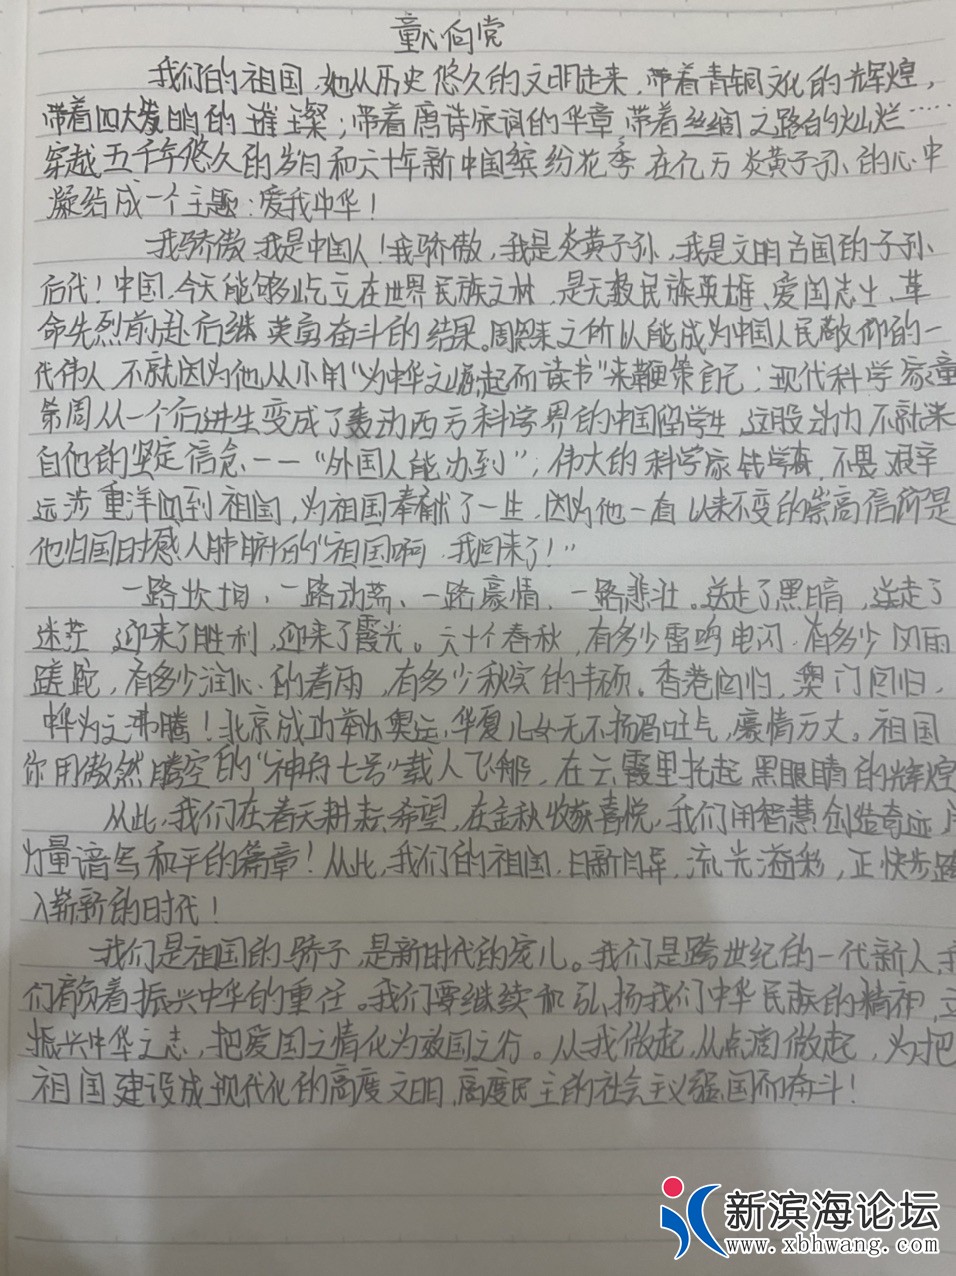 童心向党
我们的祖国,她从历史悠久的文明走来,带着青铜文化的辉煌,
带着四大发明的璀璨;带着唐诗宋词的华章,带着丝绸之路的灿烂……
穿越五千年悠久的岁月和六十年新中国缤纷花季,在亿万炎黄子孙的心中
凝结成一个主题:爱我中华!
我骄傲,我是中国人!我骄傲,我是炎黄子孙,我是文明古国的子孙
后代!中国,今天能够屹立在世界民族之林,是无数民族英雄、爱国志士、革
命先烈前赴后继英勇奋斗的结果。周恩来之所以能成为中国人民敬仰的一
代伟人,不就因为他从小用"为中华之崛起而读书"来鞭策自己;现代科学家童
第周从一个后进生变成了轰动西方科学界的中国留学生,这股动力不就来
自他的坚定信念——"外国人能办到";伟大的科学家钱学森,不畏艰辛
远涉重洋回到祖国,为祖国奉献了一生,因为他一直以来不变的崇高信仰是
他归国时感人肺腑的"祖国啊,我回来了!"
一路坎坷、一路动荡、一路豪情、一路悲壮。送走了黑暗,送走了
迷茫,迎来了胜利,迎来了霞光。六十个春秋,有多少雷鸣电闪,有多少风雨
蹉跎,有多少润心的春雨,有多少秋实的丰硕。香港回归,澳门回归,
中华为之沸腾!北京成功举办奥运,华夏儿女无不扬眉吐气,豪情万丈。祖国
你用傲然腾空的"神舟七号"载人飞船,在云霞里托起黑眼睛的辉煌
从此,我们在春天耕耘希望,在金秋收获喜悦,我们用智慧创造奇迹,用
力量谱写和平的篇章!从此,我们的祖国,日新月异,流光溢彩,正快步跨
入崭新的时代!
我们是祖国的骄子,是新时代的宠儿。我们是跨世纪的一代新人,我
们肩负着振兴中华的重任。我们要继续和弘扬我们中华民族的精神,立
振兴中华之志,把爱国之情化为效国之行。从我做起,从点滴做起,为把
祖国建设成现代化的高度文明,高度民主的社会主义强国而奋斗!
新滨海论坛
www.xbhwang.com